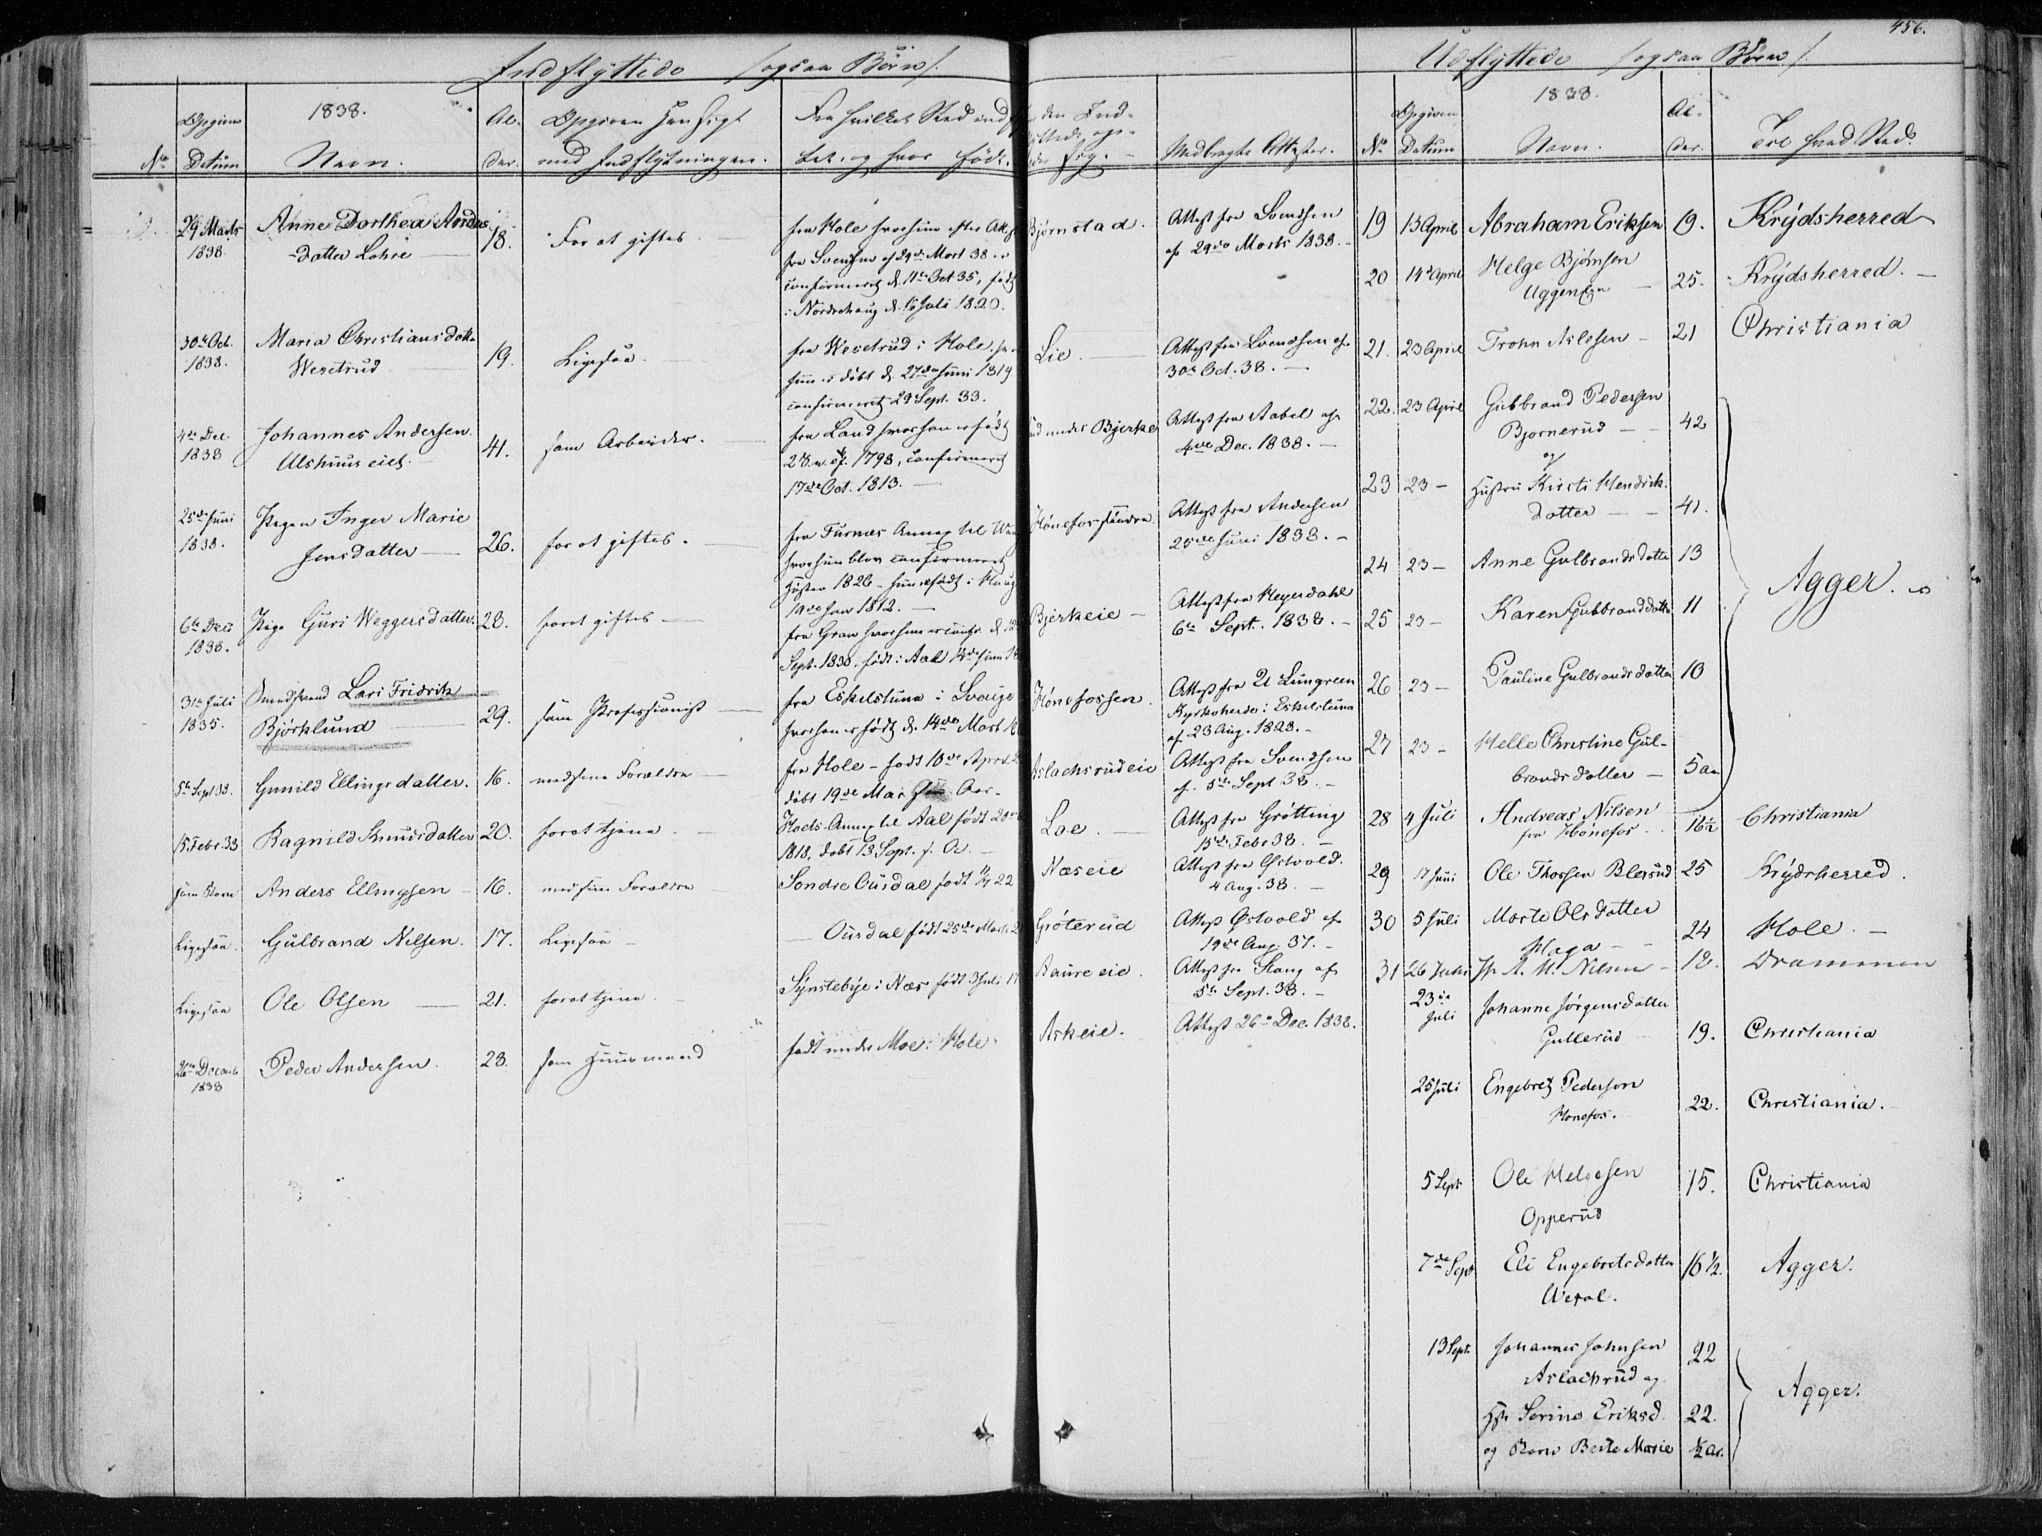 456.
Indflyttede (ogsaa Börn).
Udflyttede (ogsaa Börn).
No
Opgiven Datum
1838.
Navn.
Al-
der.
Opgiven Hensigt
med Indflytningen.
Fra hvilket Sted indfl
tet, og hvor født.
Medbragte Attester.
No
Opgiven
Datum
1838.
Navn.
Al-
der.
Til hvad Sted.
29 Marts
1838.
Anne Dorthea Anders
datter Lohre
18.
For at giftes
fra Hole hvor hun efter Attest
fra Svendsen af 29de Mart 38 er
confirmeret d. 11te Oct 35, født
i Norderhaug d. 16 Juli 1820.
Bjørnstad.
Attest fra Svendsen
af 29de Marts 1838.
30te Oct.
1838.
Maria Christiansdatter
Wesetrud
19.
Ligesaa.
fra Wesetrud i Hole.
hun er døbt d. 27de Juni 1819
confirmeret 29 Sept. 33.
Lie.
Attest fra Svendsen af
30te Oct. 38.
4de Dec.
1838
Johannes Andersen
Ulshuus eiet.
41.
som Arbeider.
fra Land hvor han er født
1798, confirmeret
17de Oct. 1813.
under Bjerke
Attest fra Aabel af
4de Dec. 1838.
25de Juni
1838.
Pigen Inger Marie
Jensdatter
26.
for at giftes.
fra Furnæs Annex til
hvor hun blev confirmeret
Høsten 1826 - hun er født i
19de Jan 1812.
Attest fra Andersen
25de Juni 1838.
6te Dec
1838.
Pige Guri Weggersdatter.
23.
for at giftes
fra Gran hvor hun er confir. d.
Sept. 1830. født i Aal 14de Juni
Bjerkeie
Attest fra Heyerdahl
6te Sept. 1838.
31te Juli
1835.
Svend Lars Fridrik
Bjørklund
29.
som Professionist
fra Eskelstuna i Sverige
hvor han er født d. 14de Mart
Hønefossen.
Attest fra U Lungreen
Kyrkoherde i Eskelstuna
af 23 Aug. 1828.
5te Sept 38.
Gunild Ellingsdatter.
16.
med sine Forældre
fra Hole - født 10de April
døbt 19de Mai Aar.
Aslachsrudeie
Attest fra Svendsen
af 5te Sept 38.
15 Febr. 38
Ragnild Knudsdatter
20.
for at tjene.
Hoels Annex til Aal født
1818, døbt 13 Sept. s. A.
Loe.
Attest fra Grøtting
15de Febr 38.
Anders Ellingsen
16.
med sine Forældre
Søndre Ourdal født 22
Næseie
Attest fra Østvold.
4 Aug. 38.
Ligesaa.
Gulbrand Nilsen.
17.
Ligesaa
Ourdal født 25de Mart.
Grøterud
Attest Østvold af
19de Aug. 37.
Ligesaa
Ole Olsen
21.
for at tjene.
Synstebye i Næs født 3 Juli
Aaureeie.
Attest fra af
5te Sept. 38.
26de Decemb
1838
Peder Andersen.
28.
som Huusmand
født under Moe i Hole.
Askeie.
Attest 26de Dec. 1838.
19
13 April
Abraham Eriksen
19.
Krydsherred
20
14de April
Helge Bjørnsen
Uggen
25.
Krydsherred.
21.
23 April
Tron Aslesen
21
Christiania
22.
23 April
Gulbrand Pedersen
Bjørnerud
42
og
23
23
Hustru Kirsti Hendrik
datter
41.
24
23
Anne Gulbrandsdatter
13
Agger.
25
23
Karen Gulbrandsdatter
11
26
23
Pauline Gulbrandsdatter
10
27
23
Helle Christine Gul-
brandsdatter
5 Aar
28
4 Juli
Andreas Nilsen
fra Hønefos.
16½
Christiania
29
17 Juni
Ole Thorsen Blersud
25
Krydsherred.
30
5 Juli
Marte Olsdatter
Haga
24
Hole.
31
26
A. U. Nilsen
18.
Drammen
23de
Juli
Johanne Jörgensdatter
Gullerud
19.
Christiania
25 Juli
Engebret Pedersen
Hønefos.
22.
Christiania.
5 Sept
Ole Helgesen
Opperud
15.
Christiania
7de Sept
Eli Engebretsdatter
Weсal.
16½.
Agger.
13 Sept.
Johannes Johnsen
Aslachrud og
22
Agger.
Hst Serine Eriksd.
22.
og Barn Berte Marie
½ Aar.